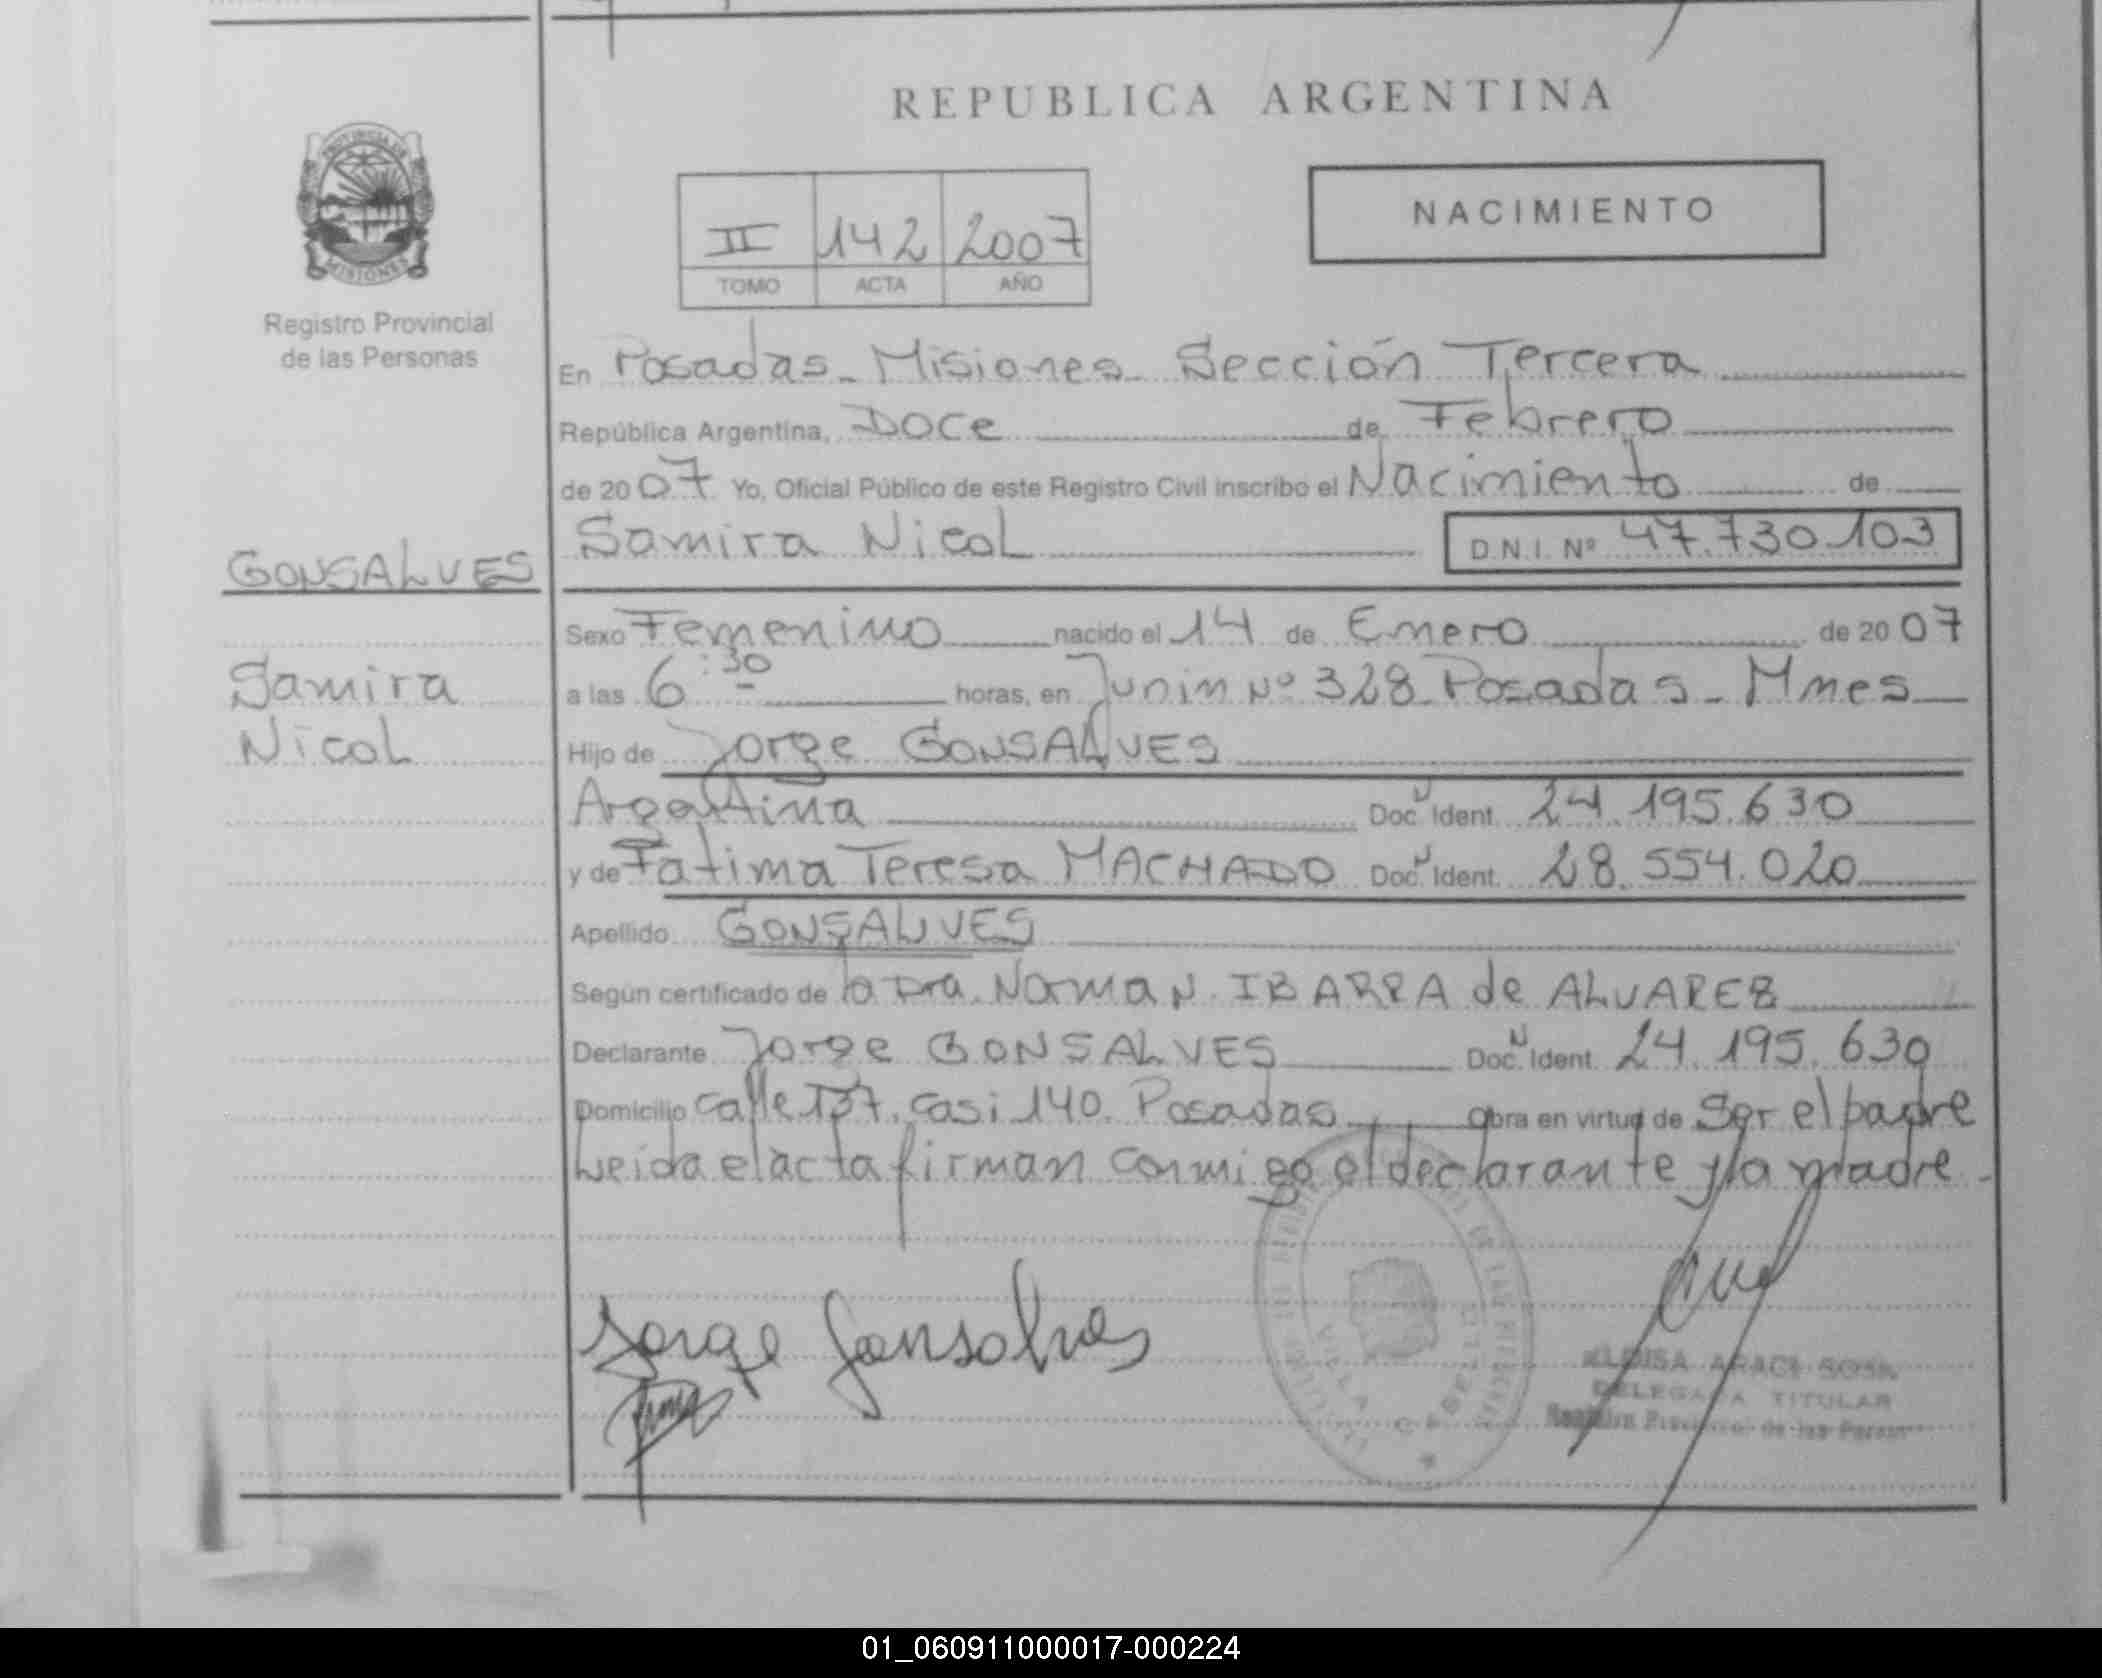 REPUBLICA ARGENTINA
PROVINCIA DE
MISIONES
Registro Provincial
de las Personas
II 142 2007
TOMO ACTA AÑO
NACIMIENTO
En Posadas - Misiones - Sección Tercera
República Argentina, Doce de Febrero
de 2007 Yo, Oficial Público de este Registro Civil inscribo el Nacimiento de
Samira Nicol D.N.I. Nº 47.730.103
GONSALVES
Sexo Femenino nacido el 14 de Enero de 2007
Samira
a las 6:30 horas, en Junin Nº 328 Posadas - Mnes
Nicol
Hijo de Jorge GONSALVES
Argentina Doc. N Ident. 24.195.630
y de Fatima Teresa MACHADO Doc. N Ident. 28.554.020
Apellido GONSALVES
Según certificado de la Dra. Norma N. IBARRA de ALVAREZ
Declarante Jorge GONSALVES Doc. N Ident. 24.195.630
Domicilio calle 137. casi 140. Posadas Obra en virtud de Ser el padre
Leida el acta firman conmigo el declarante y la madre.
Jorge Gonsalves
VILLA CABELLO
ARACI SOSA
DELEGADA TITULAR
Registro Provincial de las Person
01_060911000017-000224